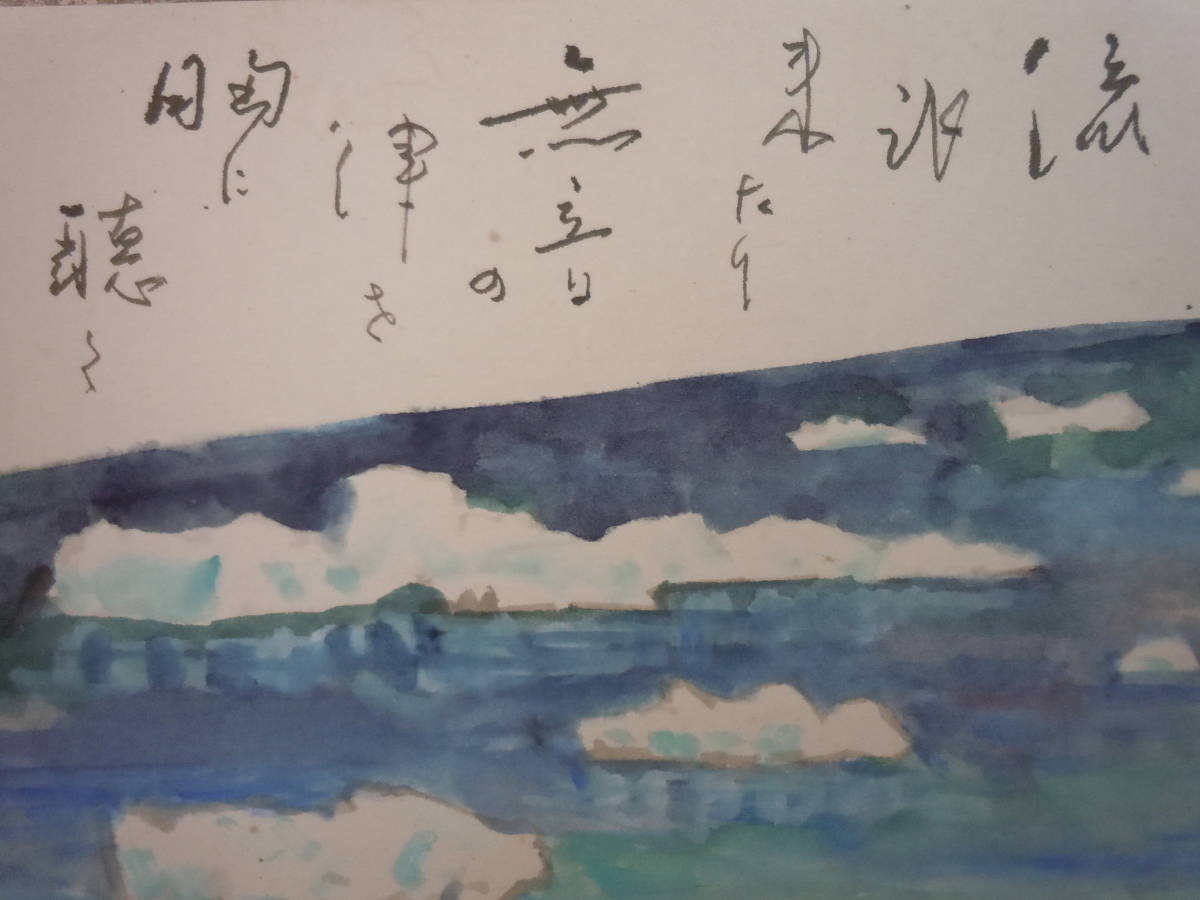 流
氷
来たり
無音
の
律を
胸に
聴く